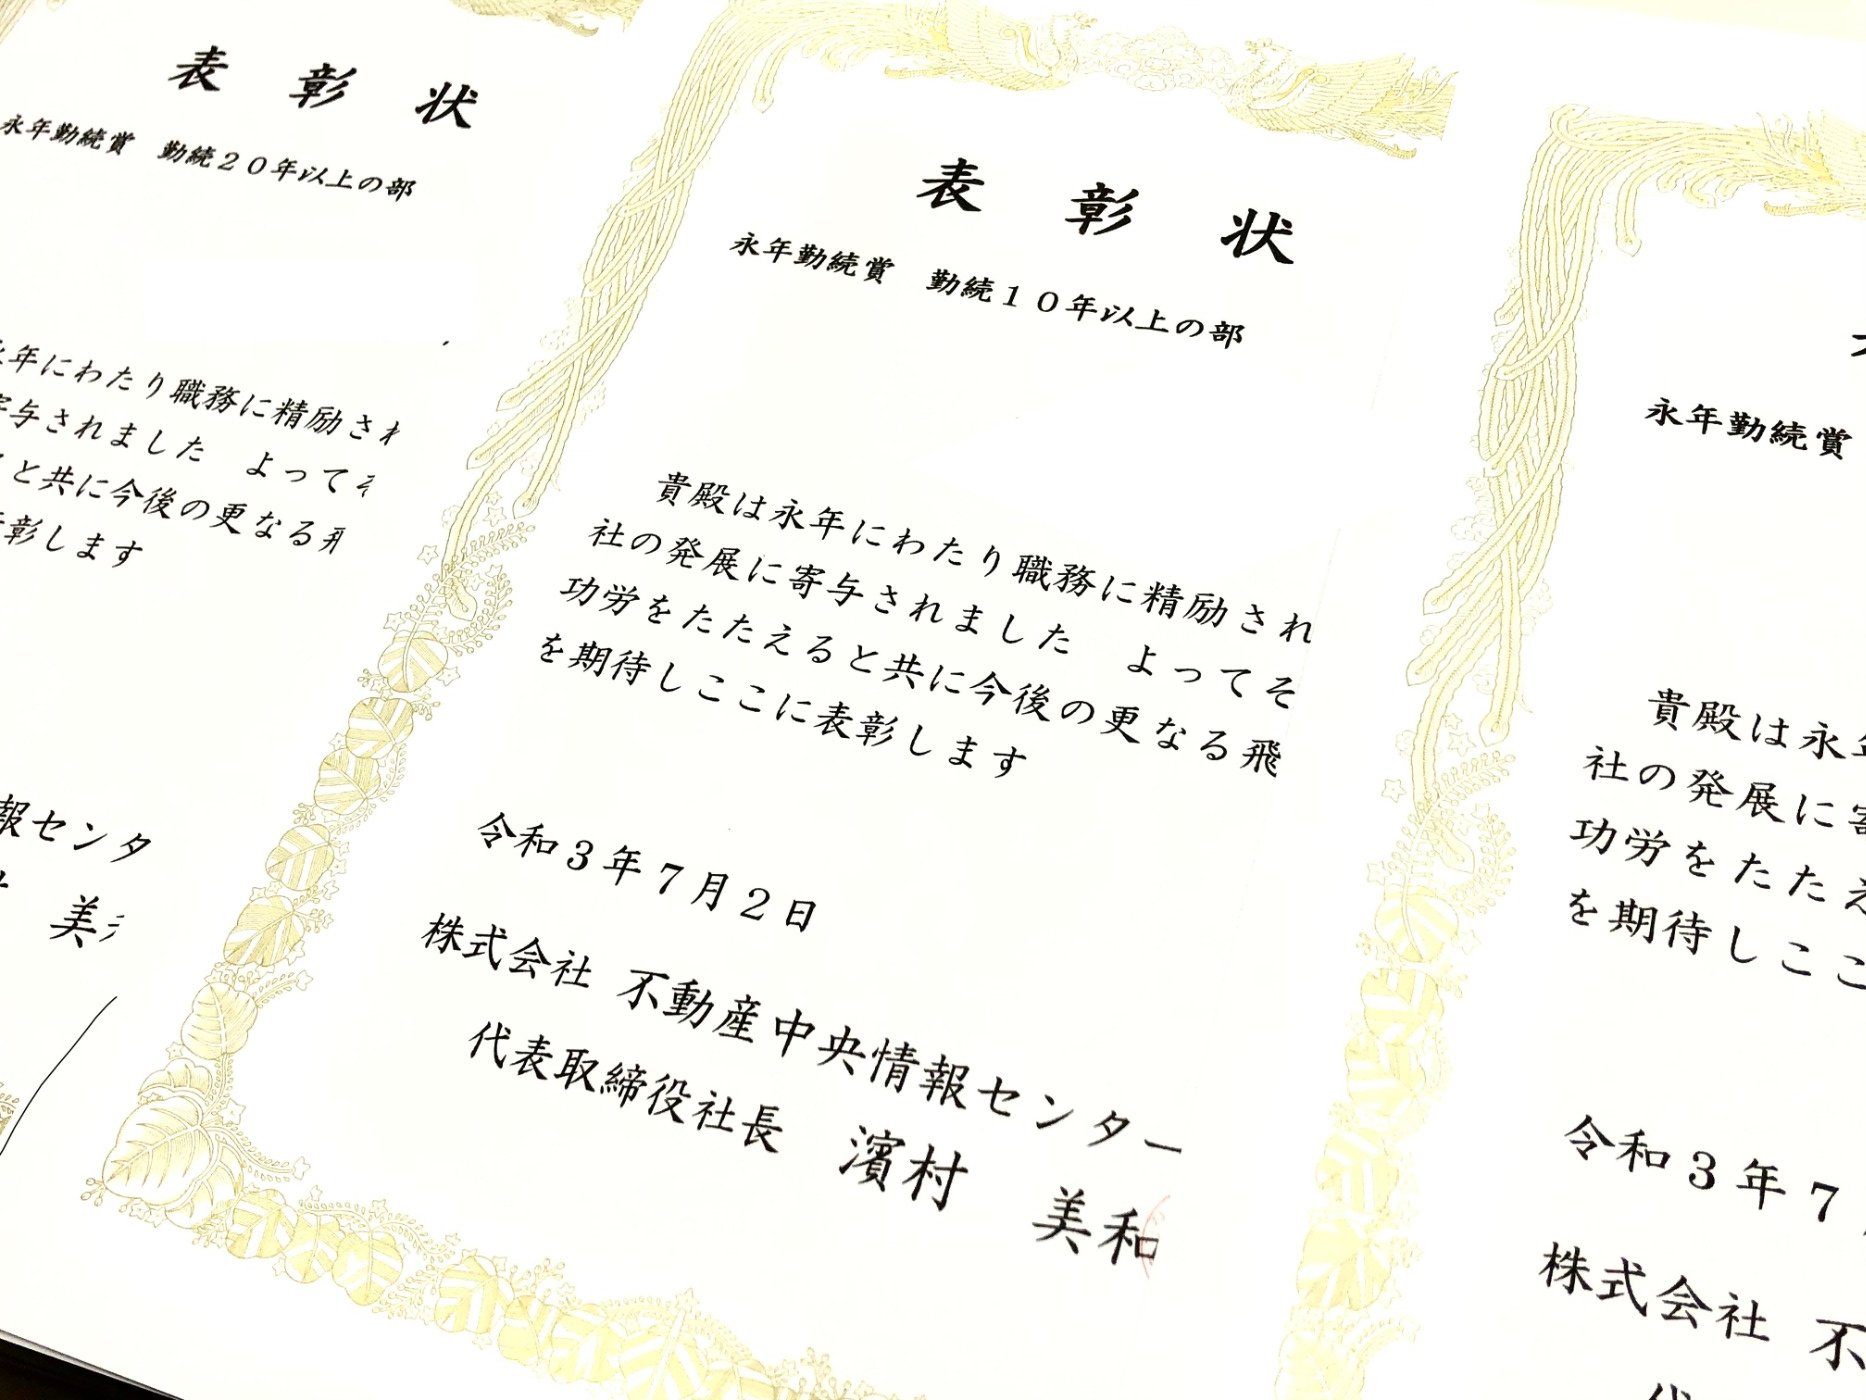 表彰状
永年勤続賞　勤続２０年以上の部
年にわたり職務に精励され
与されました　よってそ
と共に今後の更なる
彰します
報センタ
美
表彰状
永年勤続賞　勤続１０年以上の部
貴殿は永年にわたり職務に精励され
社の発展に寄与されました　よってそ
功労をたたえると共に今後の更なる飛
を期待しここに表彰します
令和３年７月２日
株式会社 不動産中央情報センター
代表取締役社長　濱村　美和
永年勤続賞
貴殿は永年
社の発展に寄
功労をたたえ
を期待しここ
令和３年７
株式会社 不
代